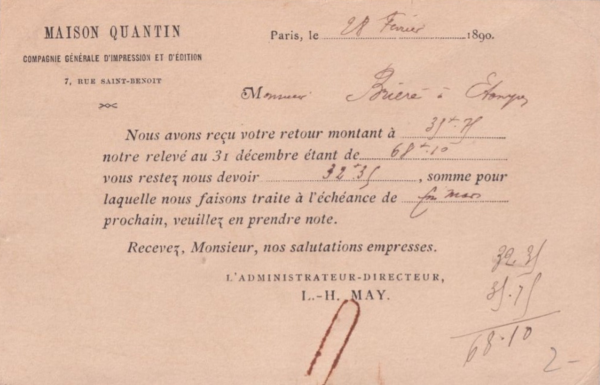 MAISON QUANTIN
COMPAGNIE GÉNÉRALE D'IMPRESSION ET D'ÉDITION
7, RUE SAINT-BENOIT
Paris, le 28 Février 1890.
Monsieur Brieré à Etampes
Nous avons reçu votre retour montant à 35f.75
notre relevé au 31 décembre étant de 68f.10
vous restez nous devoir 32f35, somme pour
laquelle nous faisons traite à l'échéance de fin mars
prochain, veuillez en prendre note.
Recevez, Monsieur, nos salutations empresses.
L'ADMINISTRATEUR-DIRECTEUR,
L.-H. MAY.
32.35
35.75
68.10
2-